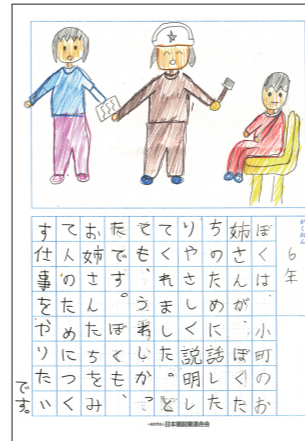 がくねん
6年
ぼくは、小町のお
姉さんが、ぼくた
ちのために話した
りやさしく説明し
てくれました。と
ても、うれしかっ
たです。ぼくも、
お姉さんたちをみ
て人のためにつく
す仕事をやりたい
です。
日本建設業連合会